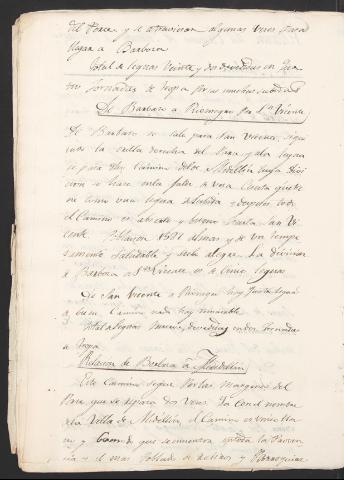 del Porce y se atraviesan algunas veces para
llegar a Barbosa
Total de leguas Veinte y dos divididas en cua
tro jornadas de tropa por sus muchas subidas
De Barbosa a Rionegro por Sn Vicente
De Barbosa se sale para San Vicente, sigue
la orilla derecha del Porce y a la legua
se para del Camino de los Medellin cuya divi
cion se hace en la falda de una Cuesta que tie
ne como una legua de subida y despues todo
el Camino es abierto y bueno hasta San Vi
cente Poblacion 1587 almas y de un tempe
ramento saludable y suelo alegre. La distancia
de Barbosa a San Vicente es de cinco leguas
De San Vicente a Rionegro hay cuatro leguas
de buen Camino nada hay notable
Total de leguas nueve, divididas en dos jornadas
de tropa
Relacion de Barbosa á Medellin
Este Camino sigue por las margenes del
Porce que se separa dos veces. Ya con el nombre
de la Villa de Medellin, el Camino es
y bueno de que se encuentra en toda la Provin
cia y el mas Poblado de vecinos y Parroquias